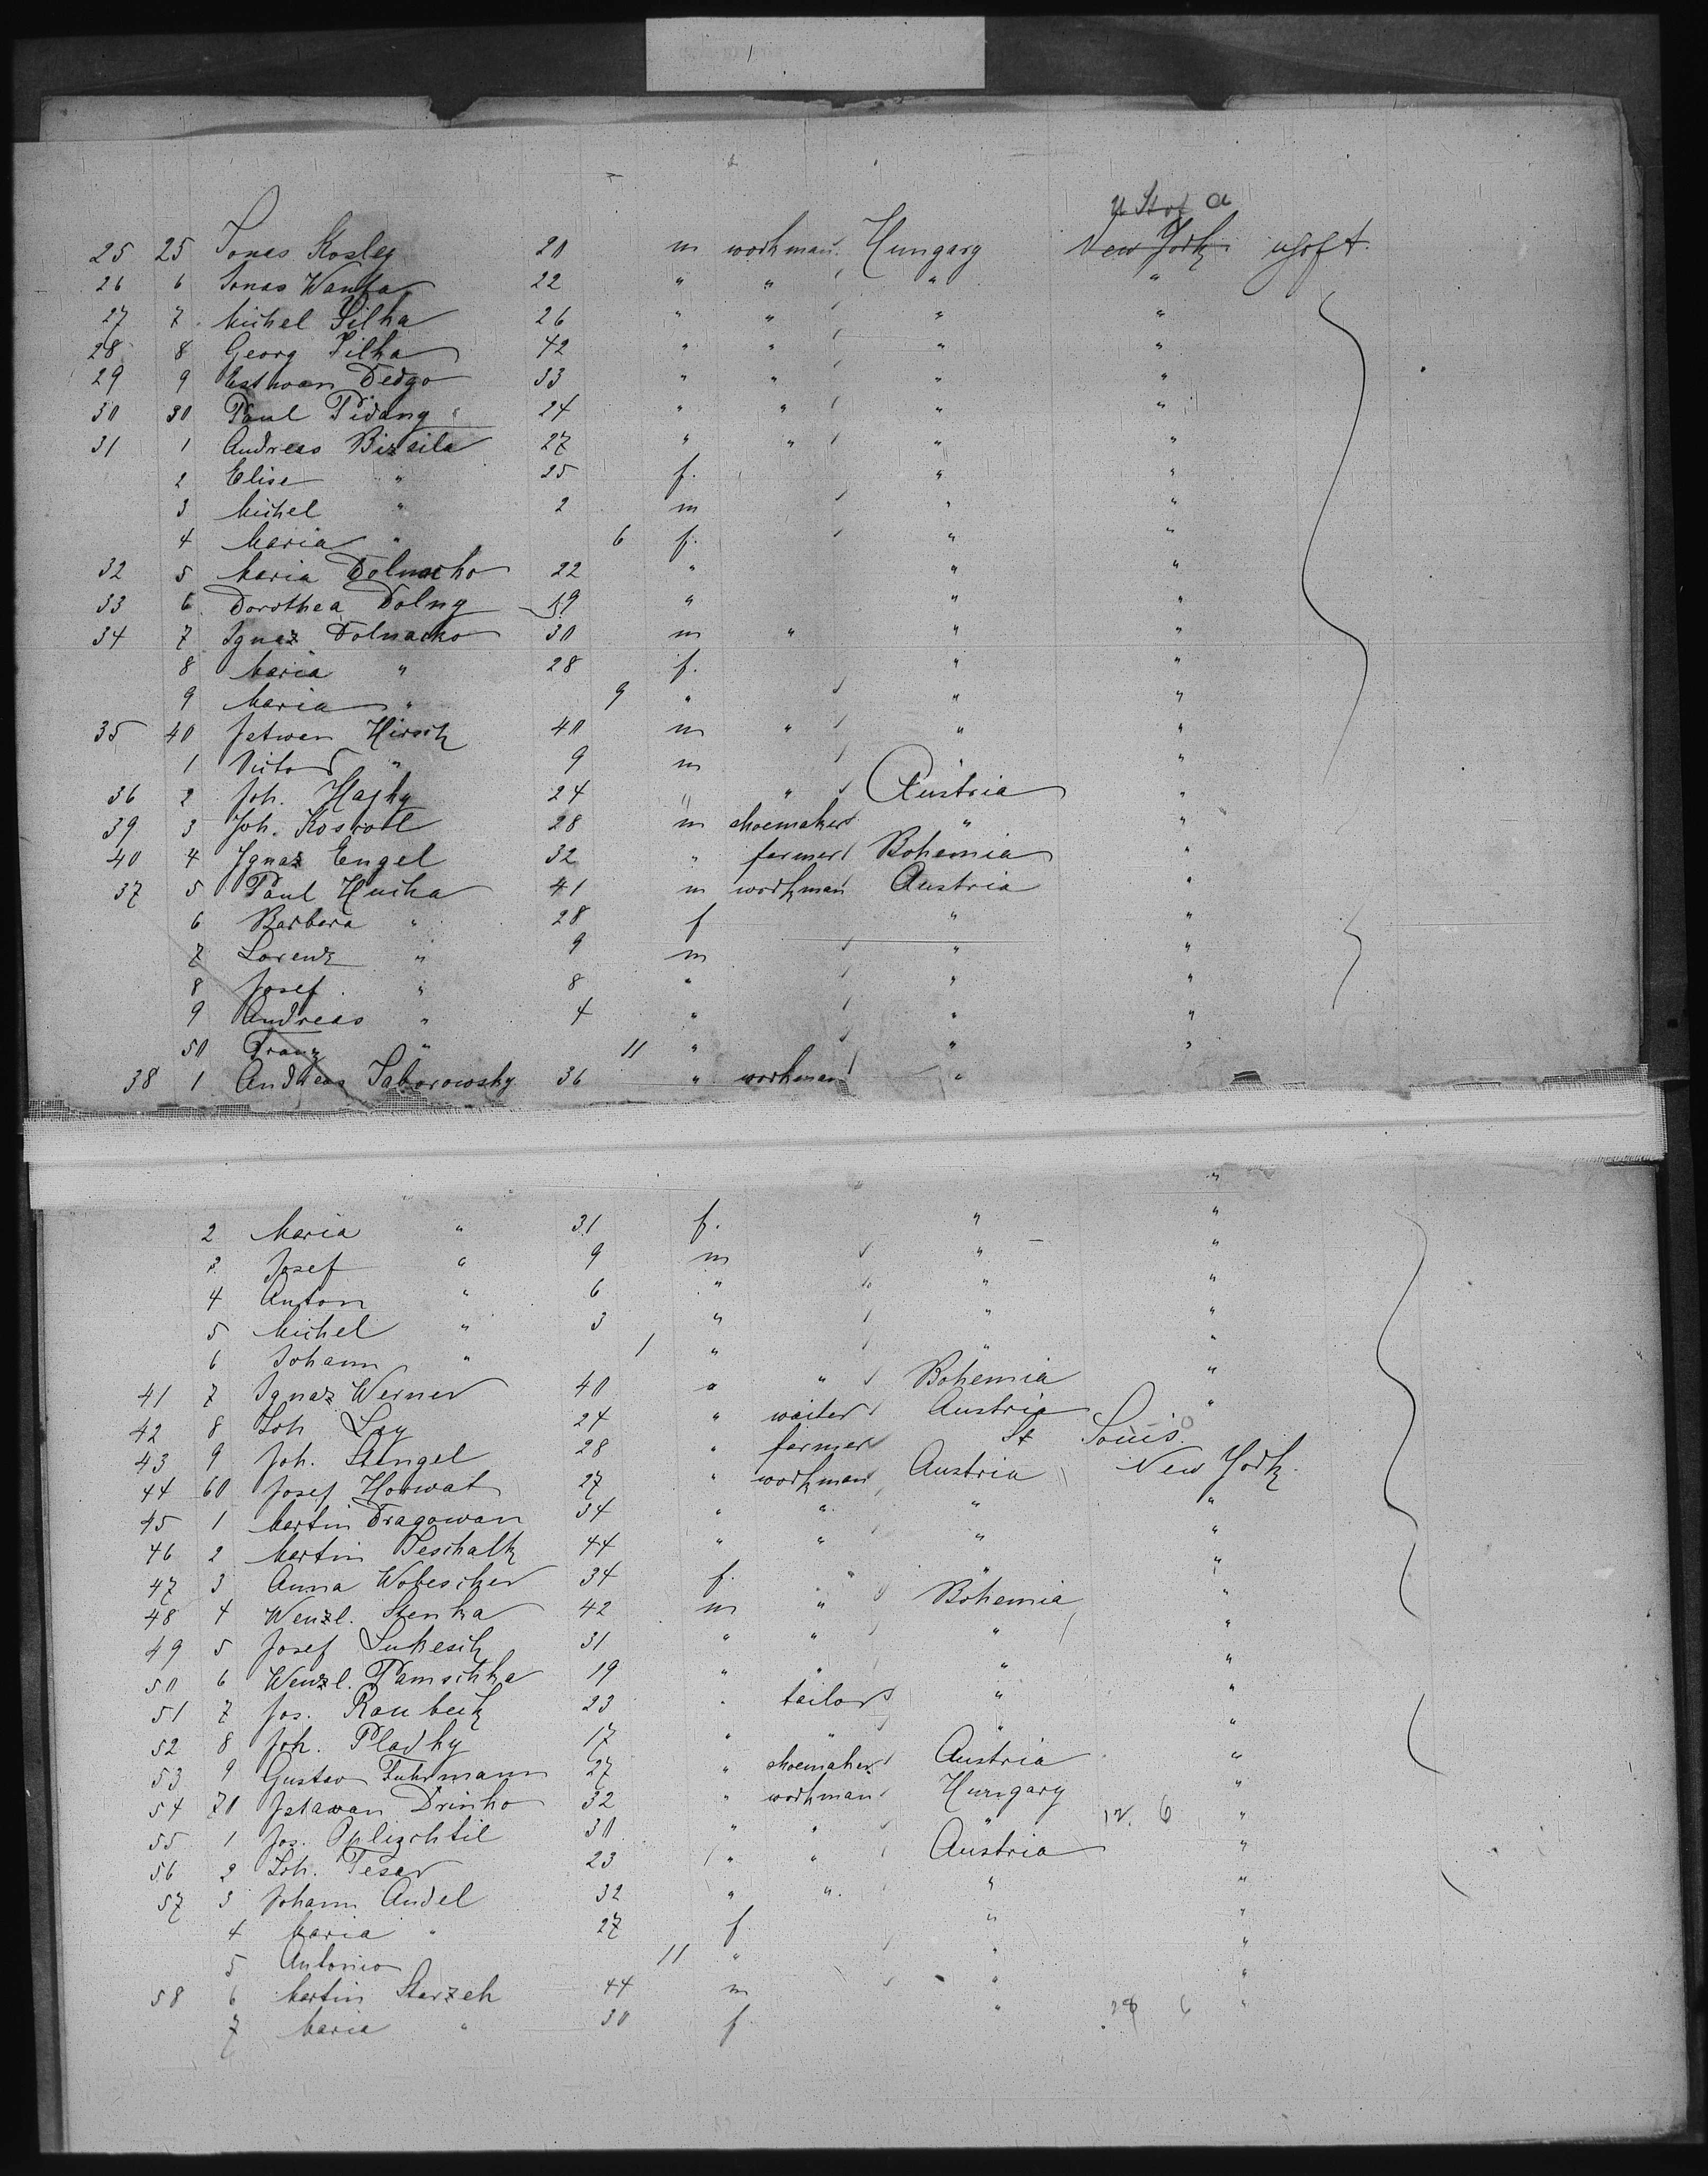 25 25 Jonas Kosley 20 m workman Hungary New York
26 6 Jonas Wanka 22 " " " "
27 7 Michel Silha 26 " " " "
28 8 Georg Silha 42 " " " "
29 9 Estwan Dedgo 33 " " " "
30 30 Paul Pidany 24 " " " "
31 1 Andreas Bizsila 27 " " " "
2 Elise " 25 f. " "
3 Michel " 2 m " "
4 Maria " 6 f. " "
32 5 Maria Dolnacko 22 " " "
33 6 Dorothea Dolny 19 " " "
34 7 Ignaz Dolnacko 30 m " " "
8 Maria " 28 f. " "
9 Maria " 9 " " "
35 40 Jstwan Hirsch 40 m " " "
1 Victor " 9 m "
36 2 Joh. Hajky 24 " " Austria "
39 3 Joh. 28 m shoemaker " "
40 4 Ignaz Engel 32 " farmer Bohemia "
37 5 Paul Hucka 41 m workman Austria "
6 Barbara " 28 f " "
7 Lorenz " 9 m " "
8 Josef " 8 " " "
9 Andreas " 4 " " "
50 Franz " 11 " " "
38 1 Andreas Saborowsky 36 " workman "
"
2 Maria " 31 f. " "
3 Josef " 9 m " "
4 Anton " 6 " " "
5 Michel " 3 " " "
6 Johann " 1 " " "
41 7 Ignaz Werner 40 " " Bohemia "
42 8 Joh. Lay 24 " waiter Austria "
43 9 Joh. Stengel 28 " farmer St Louis
44 60 Josef Horwat 27 " workman Austria New York
45 1 Martin Dragowan 34 " " " "
46 2 Martin Jeschalk 44 " " " "
47 3 Anna Wobescher 34 f. " " "
48 4 Wenzl. Stenka 42 m " Bohemia "
49 5 Josef Lukesch 31 " " " "
50 6 Wenzl. Pamschka 19 " " " "
51 7 Jos. Raubeck 23 " tailor " "
52 8 Joh. Pladky 17 " " " "
53 9 Gustav Fuhrmann 27 " shoemaker Austria "
54 70 Jstawan Drinko 32 " workman Hungary "
55 1 Jos. Oplischtil 30 " " " 6 "
56 2 Joh. Tesar 23 " " Austria "
57 3 Johann Andel 32 " " " "
4 Maria " 27 f " "
5 Antonio 11 " " "
58 6 Martin Starzek 44 m " "
7 Maria " 30 f " 6 "